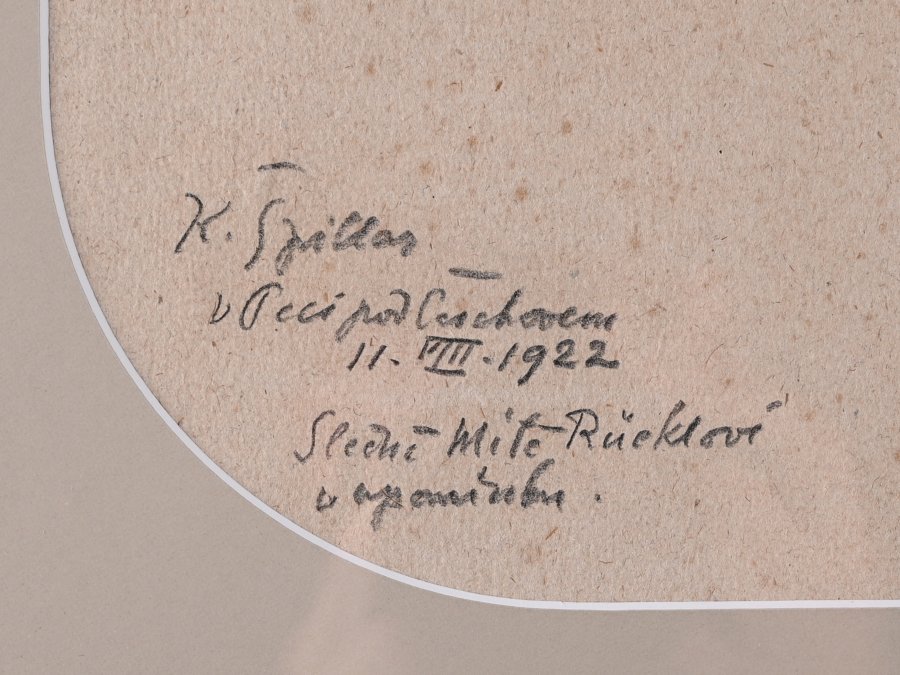 K. Špillar
v Peci pod Čerchovem
11. VIII. 1922
Slečně Mitě Rücklové
v upomínku.